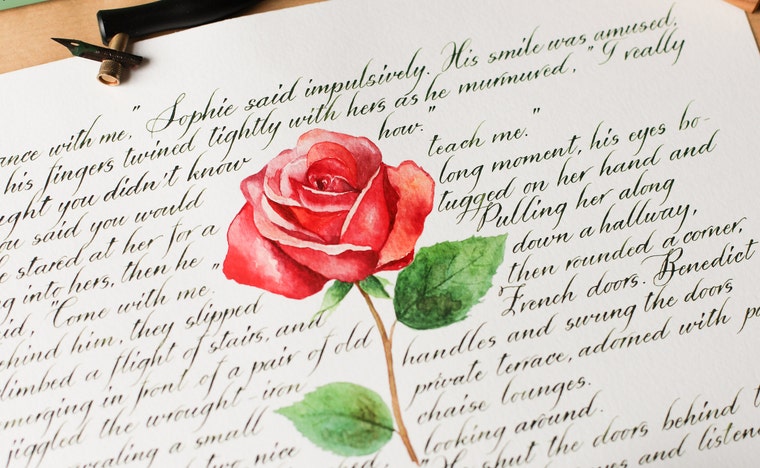 ance with me," Sophie said impulsively. His smile was amused,
his fingers twined tightly with hers as he murmured, "I really
ught you didn't know how."
ou said you would teach me."
e stared at her for a long moment, his eyes bo-
ng into hers, then he tugged on her hand and
id, "Come with me." Pulling her along
ehind him, they slipped down a hallway,
limbed a flight of stairs, and then rounded a corner,
merging in front of a pair of old French doors. Benedict
jiggled the wrought-iron handles and swung the doors
vealing a small private terrace, adorned with po
two nice chaise lounges.
looking around.
"He shut the doors behind t
eyes and listene